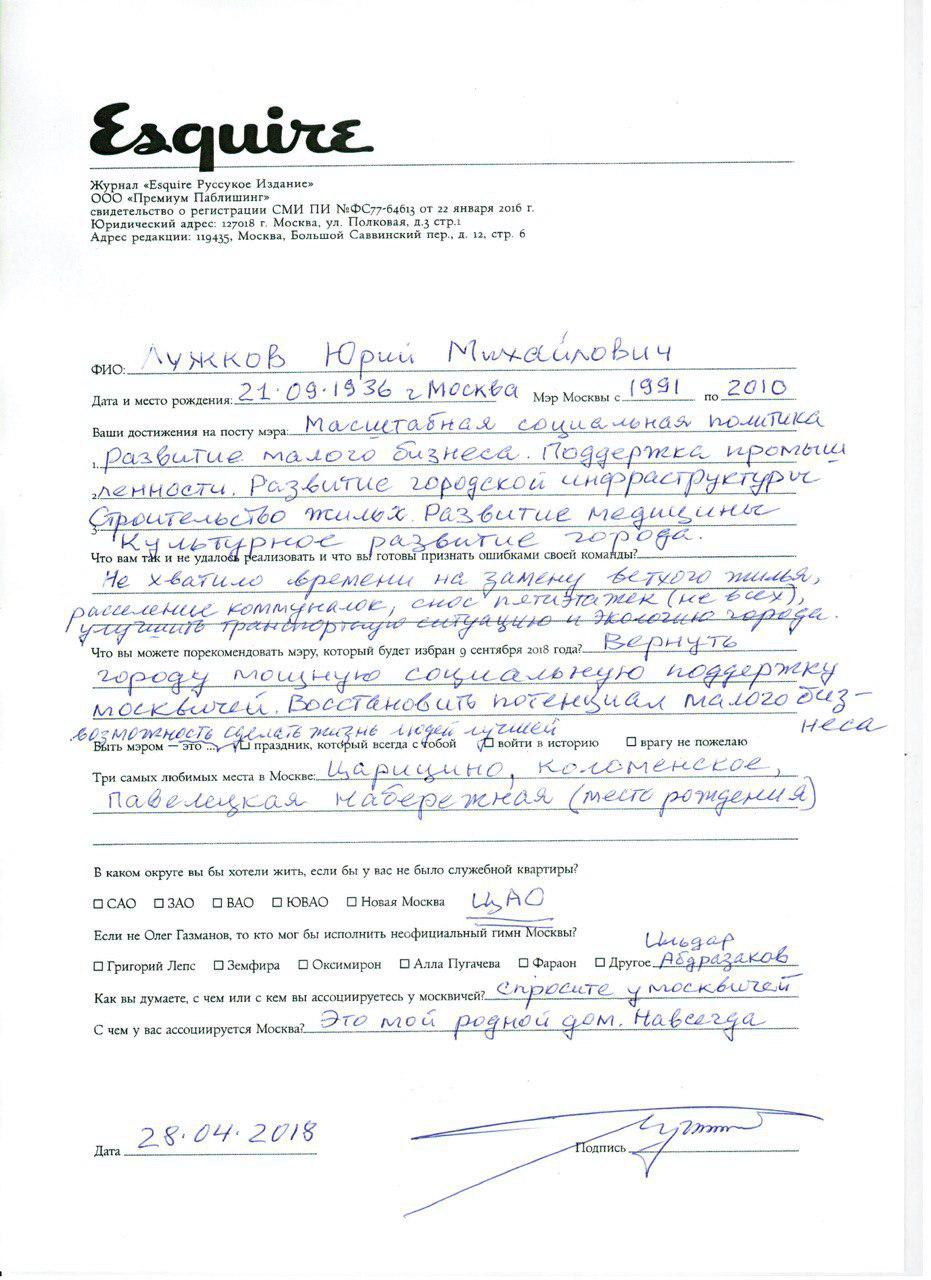 Esquire
Журнал «Esquire Руссукое Издание»
ООО «Премиум Паблишинг»
свидетельство о регистрации СМИ ПИ №ФС77-64613 от 22 января 2016 г.
Юридический адрес: 127018 г. Москва, ул. Полковая, д.3 стр.1
Адрес редакции: 119435, Москва, Большой Саввинский пер., д. 12, стр. 6
ФИО: Лужков Юрий Михайлович
Дата и место рождения: 21.09.1936 г Москва Мэр Москвы с 1991 по 2010
Ваши достижения на посту мэра: Масштабная социальная политика
1. Развитие малого бизнеса. Поддержка промыш
2. ленности. Развитие городской инфраструктуры
3. Строительство жилых. Развитие медицины
Культурное развитие города.
Что вам так и не удалось реализовать и что вы готовы признать ошибками своей команды?
Не хватило времени на замену ветхого жилья,
расселение коммуналок, снос пятиэтажек (не всех),
улучшить транспортную ситуацию и экологию города.
Что вы можете порекомендовать мэру, который будет избран 9 сентября 2018 года? Вернуть
городу мощную социальную поддержку
москвичей. Восстановить потенциал малого биз-
неса
возможность сделать жизнь людей лучшей
Быть мэром – это ... ☐ праздник, который всегда с тобой ☐ войти в историю ☐ врагу не пожелаю
Три самых любимых места в Москве: Царицино, Коломенское,
Павелецкая набережная (место рождения)
В каком округе вы бы хотели жить, если бы у вас не было служебной квартиры?
☐ САО ☐ ЗАО ☐ ВАО ☐ ЮВАО ☐ Новая Москва ЦАО
Если не Олег Газманов, то кто мог бы исполнить неофициальный гимн Москвы?
Ильдар
☐ Григорий Лепс ☐ Земфира ☐ Оксимирон ☐ Алла Пугачева ☐ Фараон ☐ Другое Абдразаков
Как вы думаете, с чем или с кем вы ассоциируетесь у москвичей? спросите у москвичей
С чем у вас ассоциируется Москва? Это мой родной дом. Навсегда
Дата 28.04.2018 Подпись